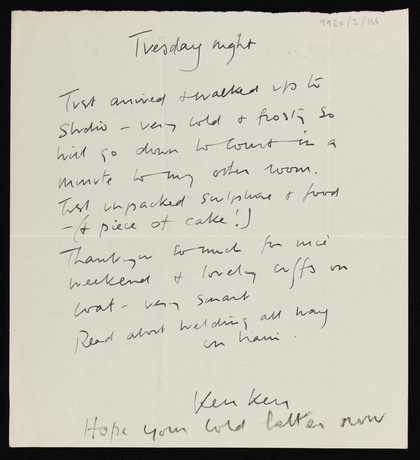 9920/2/116
Tuesday night
Just arrived & walked up to
Studio – very cold & frosty so
will go down to Court in a
minute to my other room.
Just unpacked sculpture & food
– (& piece of cake!)
Thankyou so much for nice
weekend & lovely cuffs on
coat – very smart
Read about welding all way
on train.
Ken Ken
Hope your cold better now